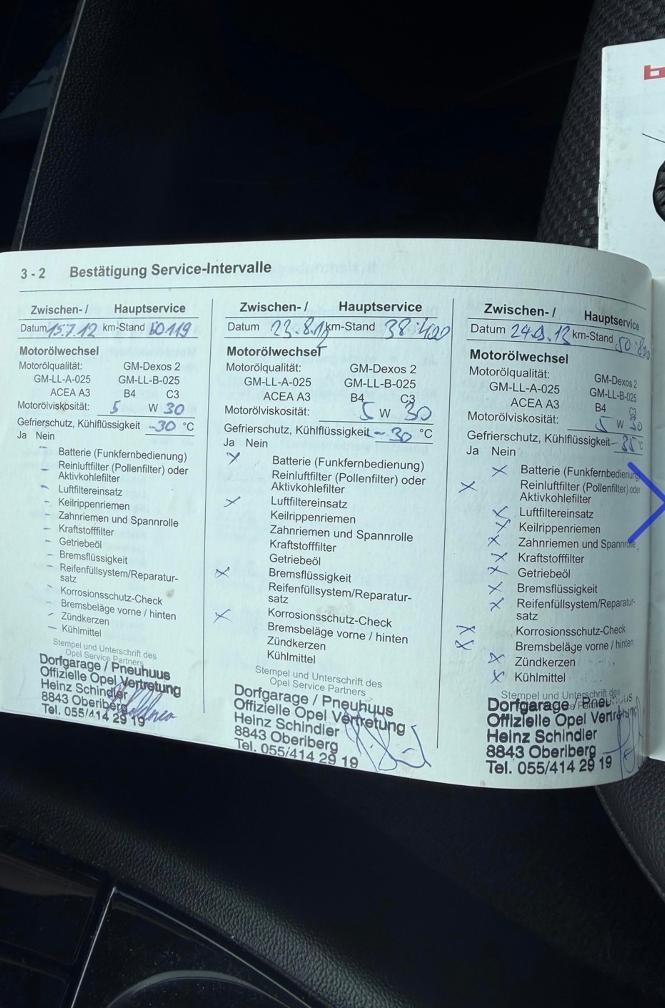 3 - 2 Bestätigung Service-Intervalle
Zwischen- / Hauptservice
Datum 15.7.12 km-Stand
Motorölwechsel
Motorölqualität: GM-Dexos 2
GM-LL-A-025 GM-LL-B-025
ACEA A3 B4 C3
Motorölviskosität: 5 W 30
Gefrierschutz, Kühlflüssigkeit -30 °C
Ja Nein
Batterie (Funkfernbedienung)
Reinluftfilter (Pollenfilter) oder
Aktivkohlefilter
Luftfiltereinsatz
Keilrippenriemen
Zahnriemen und Spannrolle
Kraftstofffilter
Getriebeöl
Bremsflüssigkeit
Reifenfüllsystem/Reparatur-
satz
Korrosionsschutz-Check
Bremsbeläge vorne / hinten
Zündkerzen
Kühlmittel
Stempel und Unterschrift des
Opel Service Partners
Dorfgarage / Pneuhuus
Offizielle Opel Vertretung
Heinz Schindler
8843 Oberiberg
Tel. 055/414 29 19
Zwischen- / Hauptservice
Datum 23.8.12 km-Stand 38'400
Motorölwechsel
Motorölqualität: GM-Dexos 2
GM-LL-A-025 GM-LL-B-025
ACEA A3 B4 C3
Motorölviskosität: 5 W 30
Gefrierschutz, Kühlflüssigkeit -30 °C
Ja Nein
Batterie (Funkfernbedienung)
Reinluftfilter (Pollenfilter) oder
Aktivkohlefilter
Luftfiltereinsatz
Keilrippenriemen
Zahnriemen und Spannrolle
Kraftstofffilter
Getriebeöl
Bremsflüssigkeit
Reifenfüllsystem/Reparatur-
satz
Korrosionsschutz-Check
Bremsbeläge vorne / hinten
Zündkerzen
Kühlmittel
Stempel und Unterschrift des
Opel Service Partners
Dorfgarage / Pneuhuus
Offizielle Opel Vertretung
Heinz Schindler
8843 Oberiberg
Tel. 055/414 29 19
Zwischen- / Hauptservice
Datum km-Stand
Motorölwechsel
Motorölqualität: GM-Dexos 2
GM-LL-A-025 GM-LL-B-025
ACEA A3 B4 C3
Motorölviskosität: 5 W 30
Gefrierschutz, Kühlflüssigkeit -35 °C
Ja Nein
Batterie (Funkfernbedienung)
Reinluftfilter (Pollenfilter) oder
Aktivkohlefilter
Luftfiltereinsatz
Keilrippenriemen
Zahnriemen und Spannrolle
Kraftstofffilter
Getriebeöl
Bremsflüssigkeit
Reifenfüllsystem/Reparatur-
satz
Korrosionsschutz-Check
Bremsbeläge vorne / hinten
Zündkerzen
Kühlmittel
Stempel und Unterschrift des
Dorfgarage / Pneuhuus
Offizielle Opel Vertretung
Heinz Schindler
8843 Oberiberg
Tel. 055/414 29 19